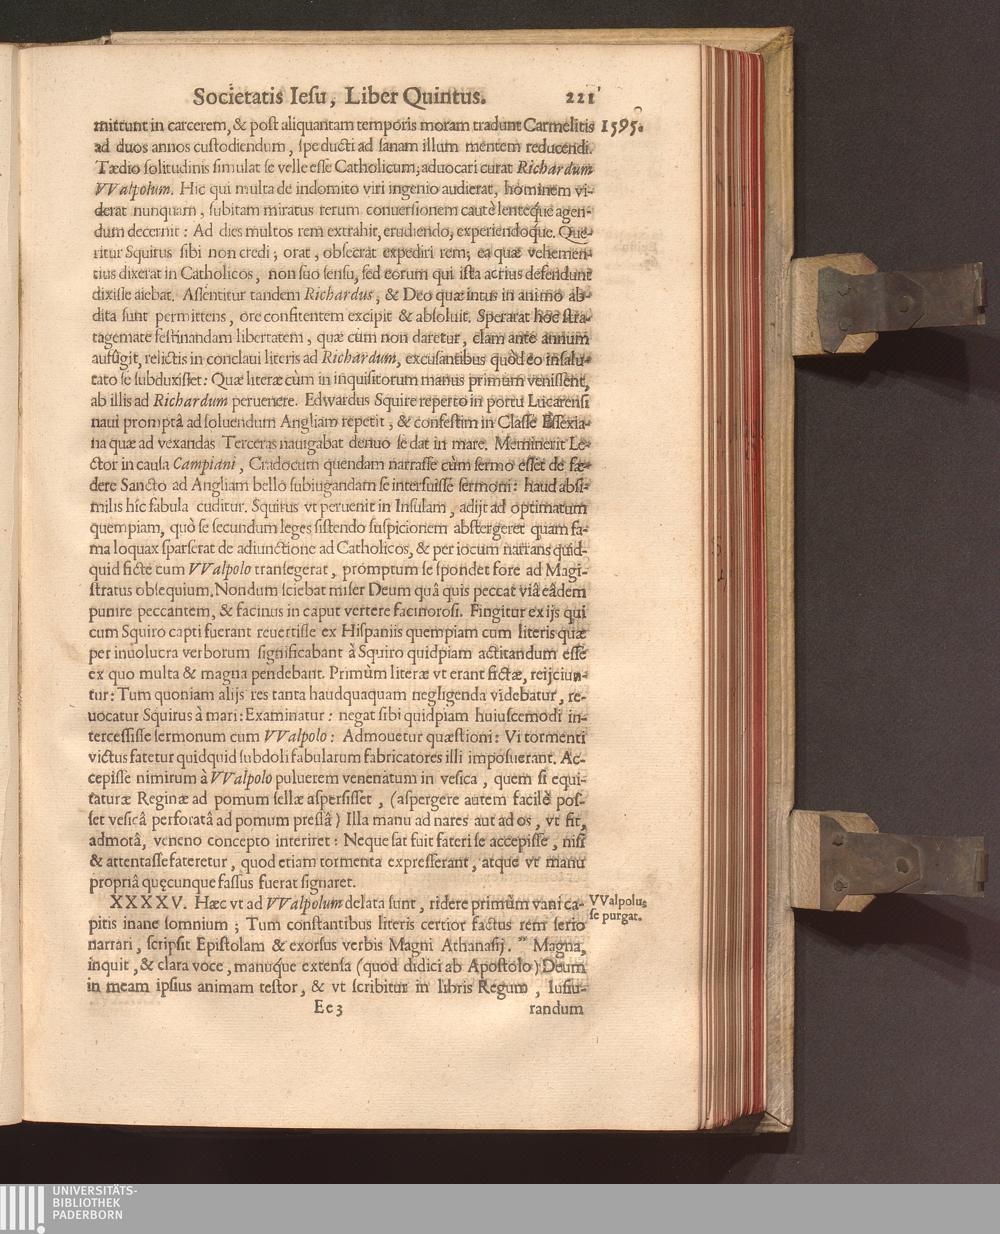 Societatis Iesu, Liber Quintus. 221
mittunt in carcerem, & post aliquantam temporis moram tradunt Carmelitis 1595.
ad duos annos custodiendum, spe ducti ad sanam illum mentem reducendi.
Tædio solitudinis simulat se velle esse Catholicum; aduocari curat Richardum
VValpolum. Hic qui multa de indomito viri ingenio audierat, hominem vi-
derat nunquam, subitam miratus rerum conuersionem cautè lentéque agen-
dum decernit: Ad dies multos rem extrahit, erudiendo, experiendoque. Que-
ritur Squirus sibi non credi; orat, obsecrat expediri rem; ea quæ vehemen-
tius dixerat in Catholicos, non suo sensu, sed eorum qui ista acrius defendunt
dixisse aiebat. Assentitur tandem Richardus, & Deo quæ intus in animo ab-
dita sunt permittens, ore confitentem excipit & absoluit. Sperarat hoc stra-
tagemate festinandam libertatem, quæ cùm non daretur, clam ante annum
aufugit, relictis in conclaui literis ad Richardum, excusantibus quòd eo insalu-
tato se subduxisset: Quæ literæ cùm in inquisitorum manus primùm venissent,
ab illis ad Richardum peruenere. Edwardus Squire reperto in portu Lucarensi
naui promptâ ad soluendum Angliam repetit, & confestim in Classe Essexia-
na quæ ad vexandas Terceras nauigabat denuo se dat in mare. Meminerit Le-
ctor in causa Campiani, Cradocum quendam narrasse cùm sermo esset de fæ-
dere Sancto ad Angliam bello subiugandam se interfuisse sermoni: haud absi-
milis híc fabula cuditur. Squirus vt peruenit in Insulam, adijt ad optimatum
quempiam, quò se secundum leges sistendo suspicionem abstergeret quam fa-
ma loquax sparserat de adiunctione ad Catholicos, & per iocum narrans quid-
quid ficte cum VValpolo transegerat, promptum se spondet fore ad Magi-
stratus obsequium. Nondum sciebat miser Deum quâ quis peccat viâ eâdem
punire peccantem, & facinus in caput vertere facinorosi. Fingitur ex ijs qui
cum Squiro capti fuerant reuertisse ex Hispaniis quempiam cum literis quæ
per inuolucra verborum significabant à Squiro quidpiam actitandum esse
ex quo multa & magna pendebant. Primùm literæ vt erant fictæ, reijciun-
tur: Tum quoniam alijs res tanta haudquaquam negligenda videbatur, re-
uocatur Squirus à mari: Examinatur: negat sibi quidpiam huiuscemodi in-
tercessisse sermonum cum VValpolo: Admouetur quæstioni: Vi tormenti
victus fatetur quidquid subdoli fabularum fabricatores illi imposuerant. Ac-
cepisse nimirum à VValpolo puluerem venenatum in vesica, quem si equi-
taturæ Reginæ ad pomum sellæ aspersisset, (aspergere autem facilè pos-
set vesicâ perforatâ ad pomum pressâ) Illa manu ad nares aut ad os, vt fit,
admotâ, veneno concepto interiret: Neque sat fuit fateri se accepisse, nisi
& attentasse fateretur, quod etiam tormenta expresserant, atque vt manu
propriâ quęcunque fassus fuerat signaret.
XXXXV. Hæc vt ad VValpolum delata sunt, ridere primùm vani ca- VValpolus
pitis inane somnium; Tum constantibus literis certior factus rem serio se purgat.
narrari, scripsit Epistolam & exorsus verbis Magni Athanasij. ” Magna,
inquit, & clara voce, manuq́ue extensa (quod didici ab Apostolo) Deum
in meam ipsius animam testor, & vt scribitur in libris Regum, Iusiu-
Ee 3 randum
UNIVERSITÄTS-
BIBLIOTHEK
PADERBORN